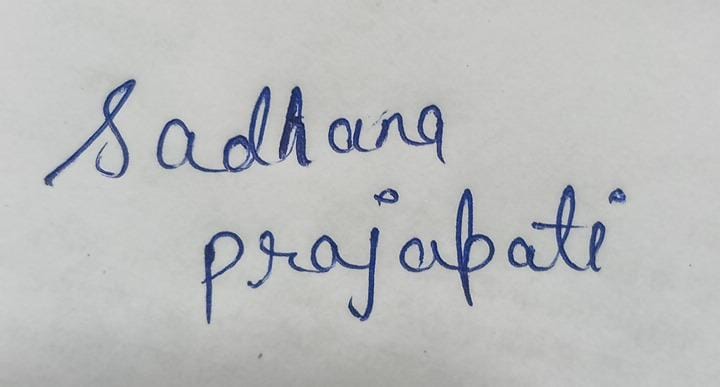 Sadhana
prajapati